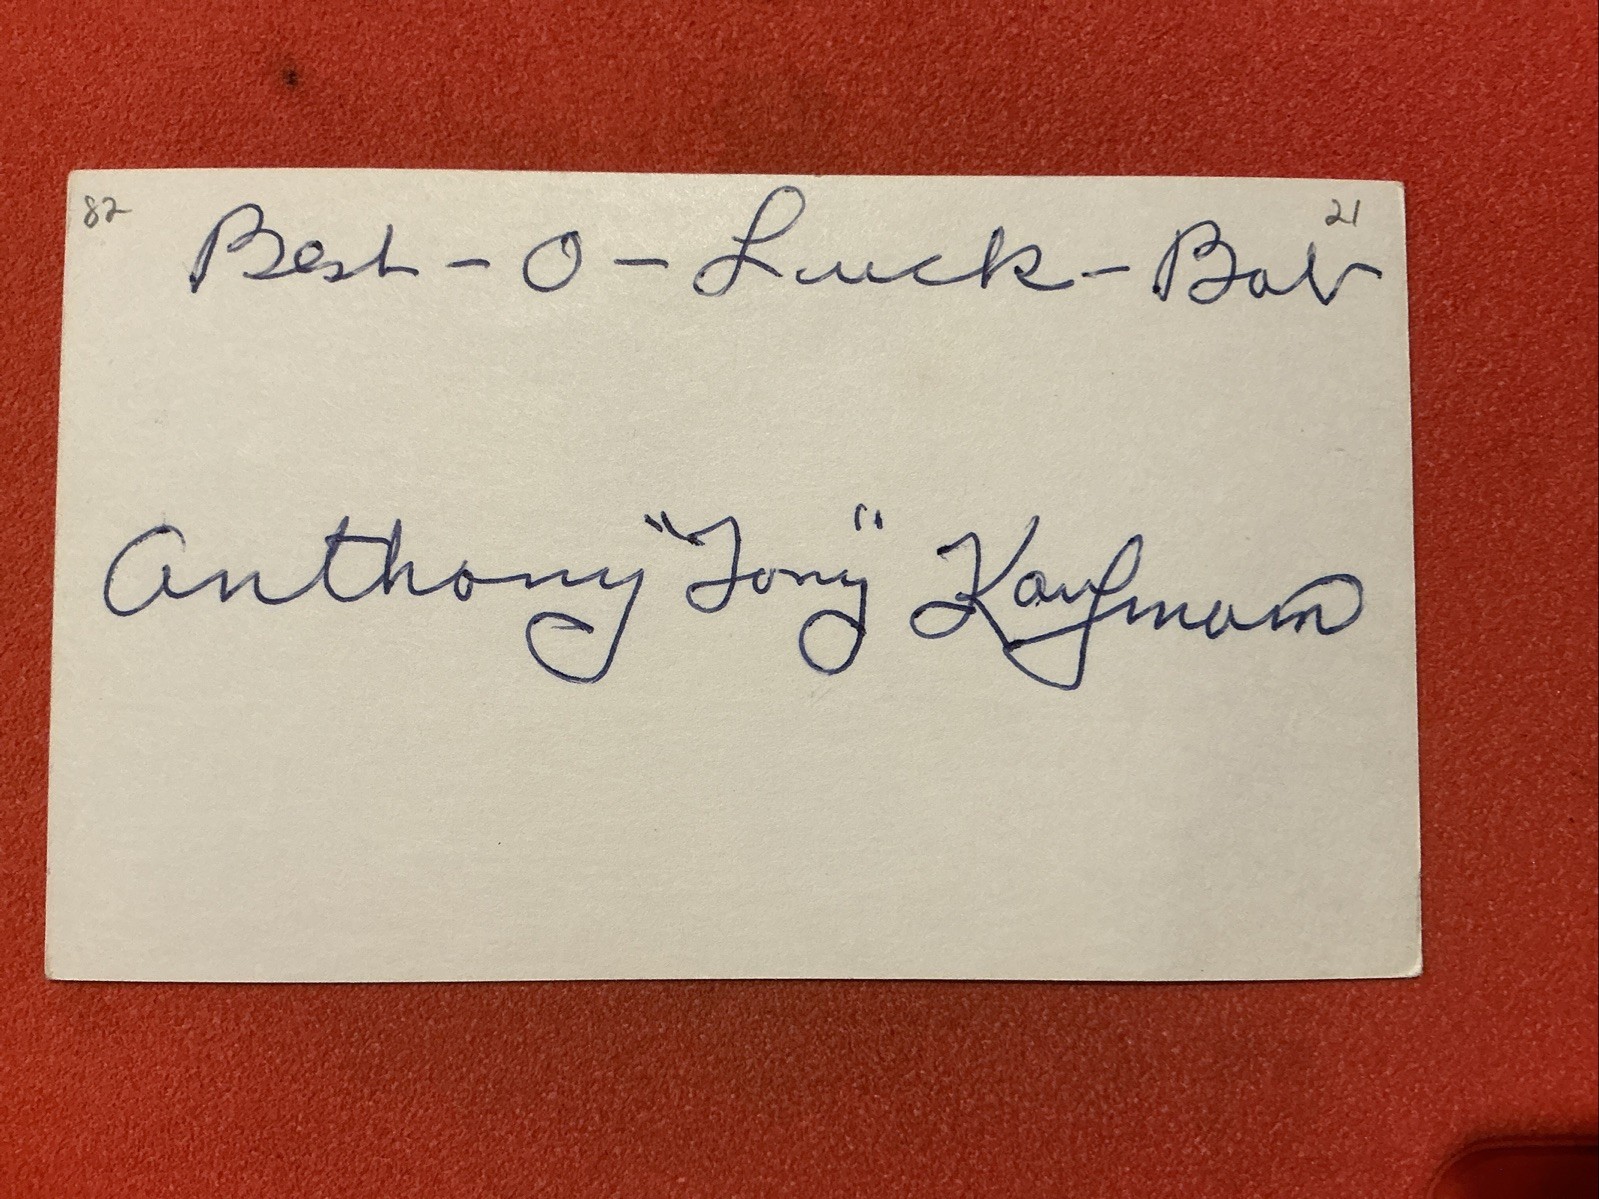 82 21
Best - O - Luck - Bob
Anthony "Tony" Kaufmann